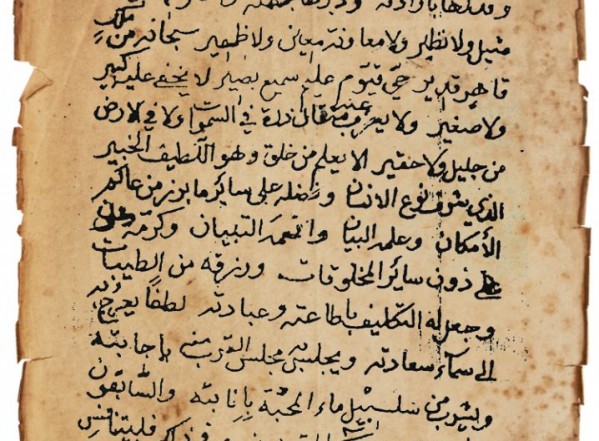 وقدرها بارادته
مثيل ولا نظير ولا معاونة معين ولا ظهير سبحانه من ملك
قاهر قدير حي قيوم عليم سميع بصير لا يخفى عليه كبير
ولا صغير ولا يعزب عنه مثقال ذرة في السموات ولا في الارض
من جليل ولا حقير الا يعلم من خلق وهو اللطيف الخبير
الذي شرف نوع الانسان وفضله على سائر ما برز من عالم
الأمكان وعلمه البيان والتبيان وكرمه
دون سائر المخلوقات ورزقه من الطيبات
وجعل له التكليف باطاعته وعبادته لطفا يعرج به
الى سماء سعادته ويجلس مجلس القرب منه باجابته
ويشرب من سلسبيل ماء المحبة بإنابته والسابقون
فليتنافس